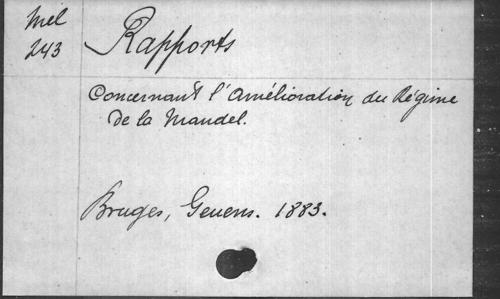 Mel
243
Rapports
Concernant l'Amélioration du Régime
de la Mandel.
Bruges, Geuens. 1883.